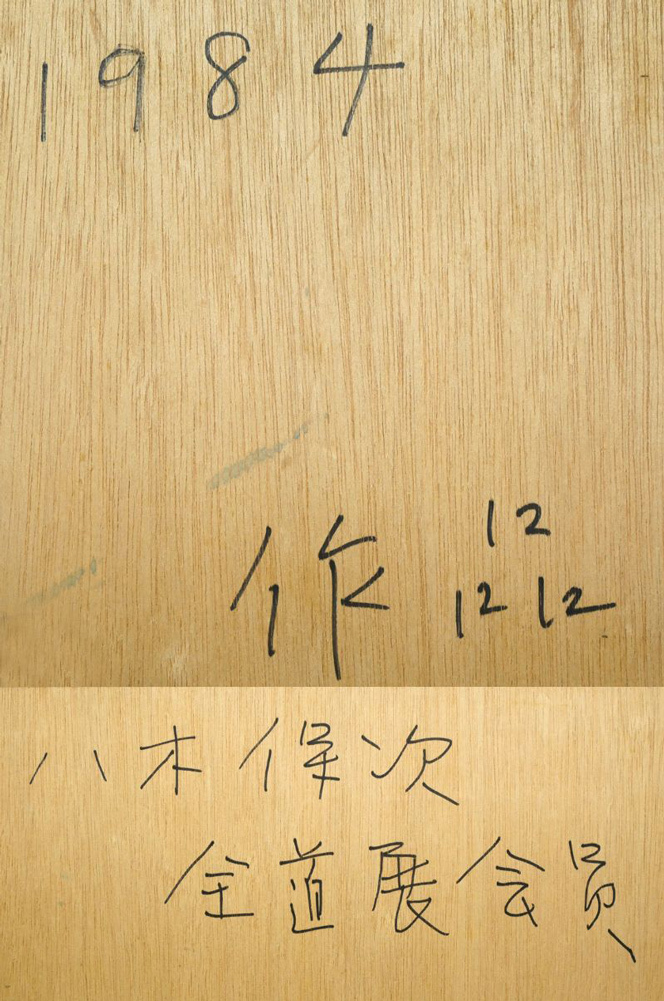 1984
作品
八木保次
全道展会員